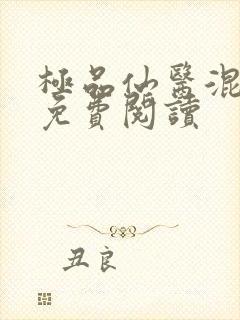 極品仙醫混
免費閱讀
丑良